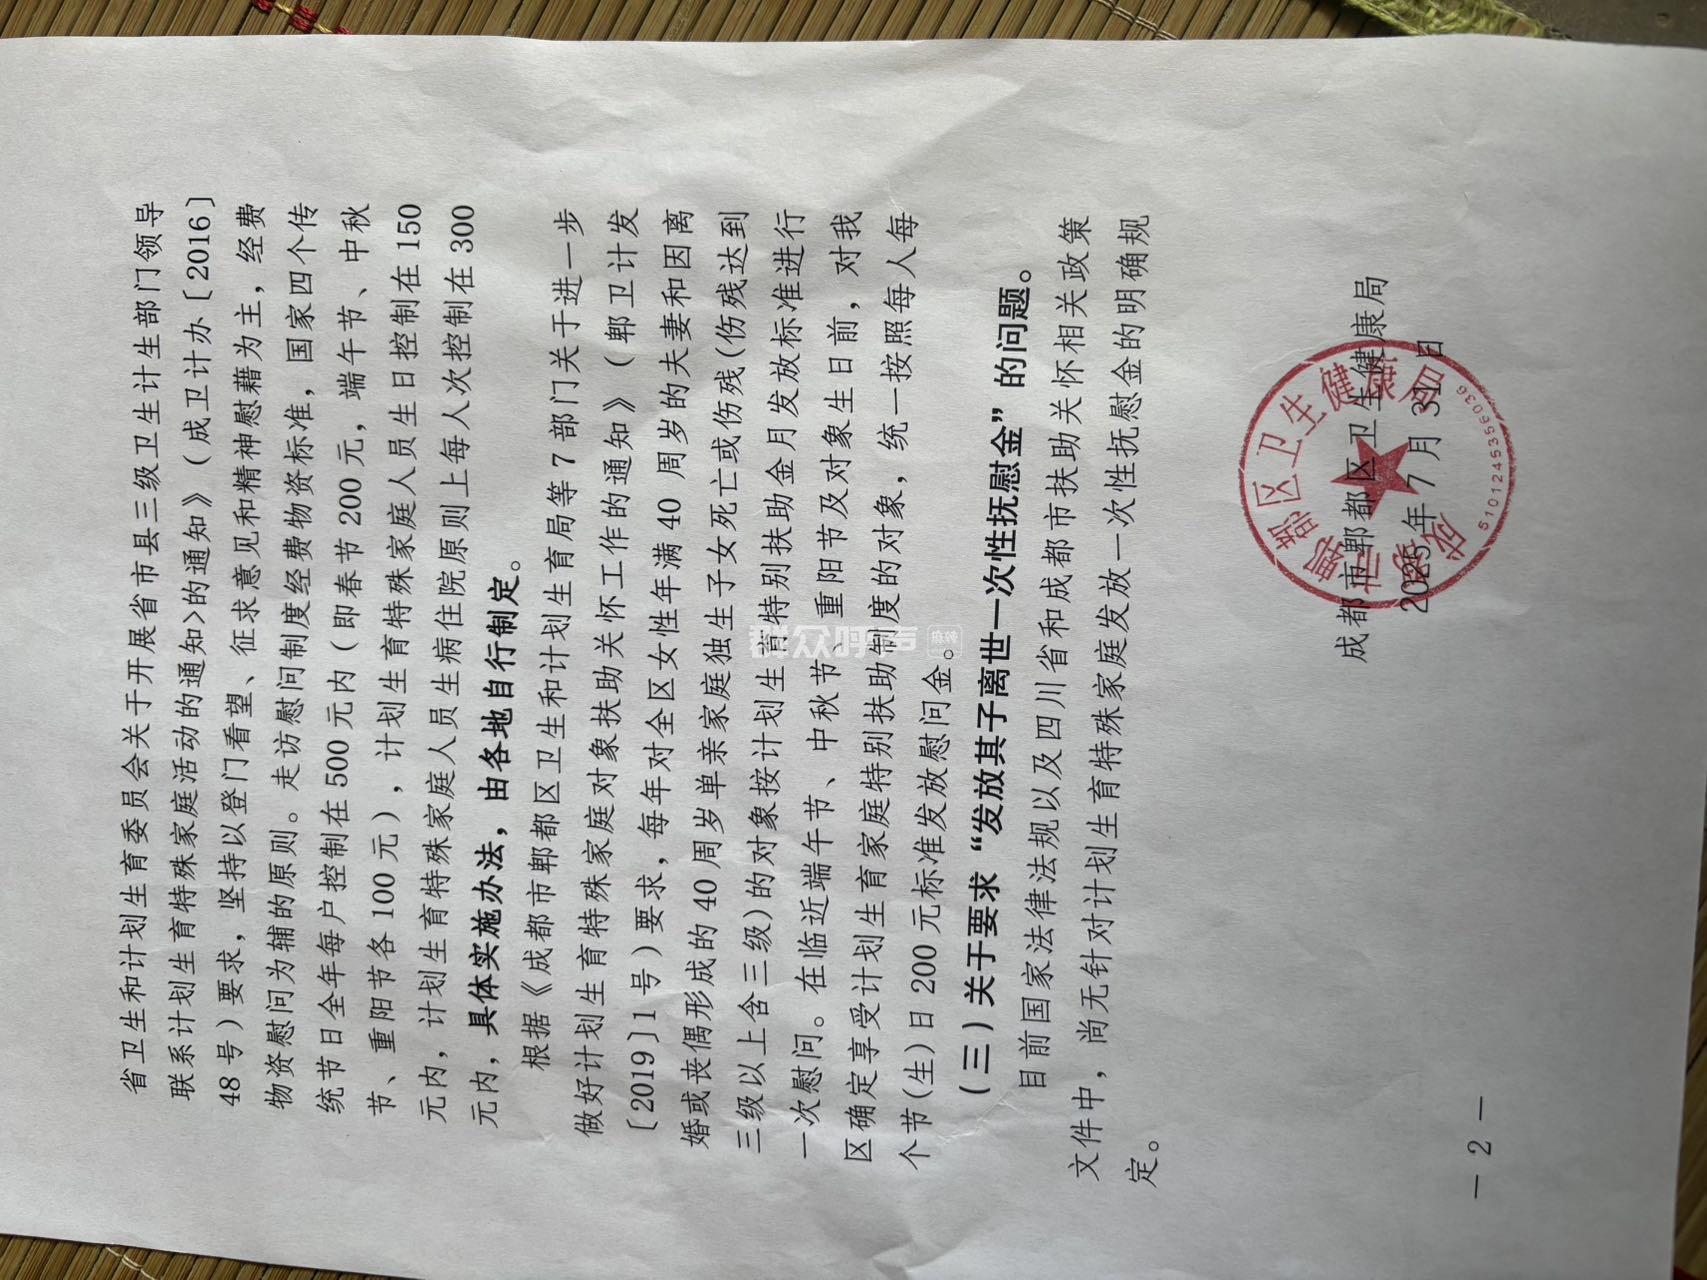 省卫生和计划生育委员会关于开展省市县三级卫生计生部门领导
联系计划生育特殊家庭活动的通知>的通知》（成卫计办〔2016〕
48 号）要求，坚持以登门看望、征求意见和精神慰藉为主，经费
物资慰问为辅的原则。走访慰问制度经费物资标准，国家四个传
统节日全年每户控制在 500 元内（即春节 200 元，端午节、中秋
节、重阳节各 100 元），计划生育特殊家庭人员生日控制在 150
元内，计划生育特殊家庭人员生病住院原则上每人次控制在 300
元内，具体实施办法，由各地自行制定。
根据《成都市郫都区卫生和计划生育局等 7 部门关于进一步
做好计划生育特殊家庭对象扶助关怀工作的通知》（郫卫计发
〔2019〕1 号）要求，每年对全区女性年满 40 周岁的夫妻和因离
婚或丧偶形成的 40 周岁单亲家庭独生子女死亡或伤残(伤残达到
三级以上含三级)的对象按计划生育特别扶助金月发放标准进行
一次慰问。在临近端午节、中秋节、重阳节及对象生日前，对我
区确定享受计划生育家庭特别扶助制度的对象，统一按照每人每
个节(生)日 200 元标准发放慰问金。
(三)关于要求“发放其子离世一次性抚慰金”的问题。
目前国家法律法规以及四川省和成都市扶助关怀相关政策
文件中，尚无针对计划生育特殊家庭发放一次性抚慰金的明确规
定。
成都市郫都区卫生健康局
2025 年 7 月 31 日
5101245356036
— 2 —
群众呼声